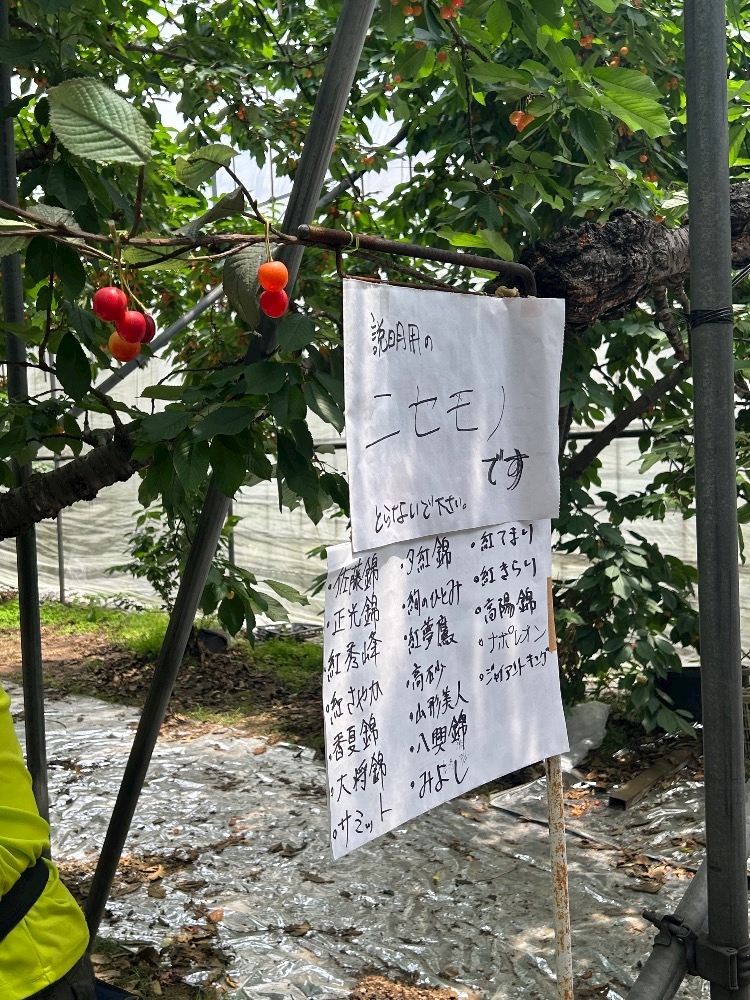 説明用の
ニセモノ
です
とらないで下さい。
・佐藤錦
・正光錦
・紅秀峰
・紅さやか
・香夏錦
・大将錦
・サミット
・夕紅錦
・絢のひとみ
・紅夢鷹
・高砂
・山形美人
・八興錦
・みよし
・紅てまり
・紅きらり
・高陽錦
・ナポレオン
・ジャイアントキング